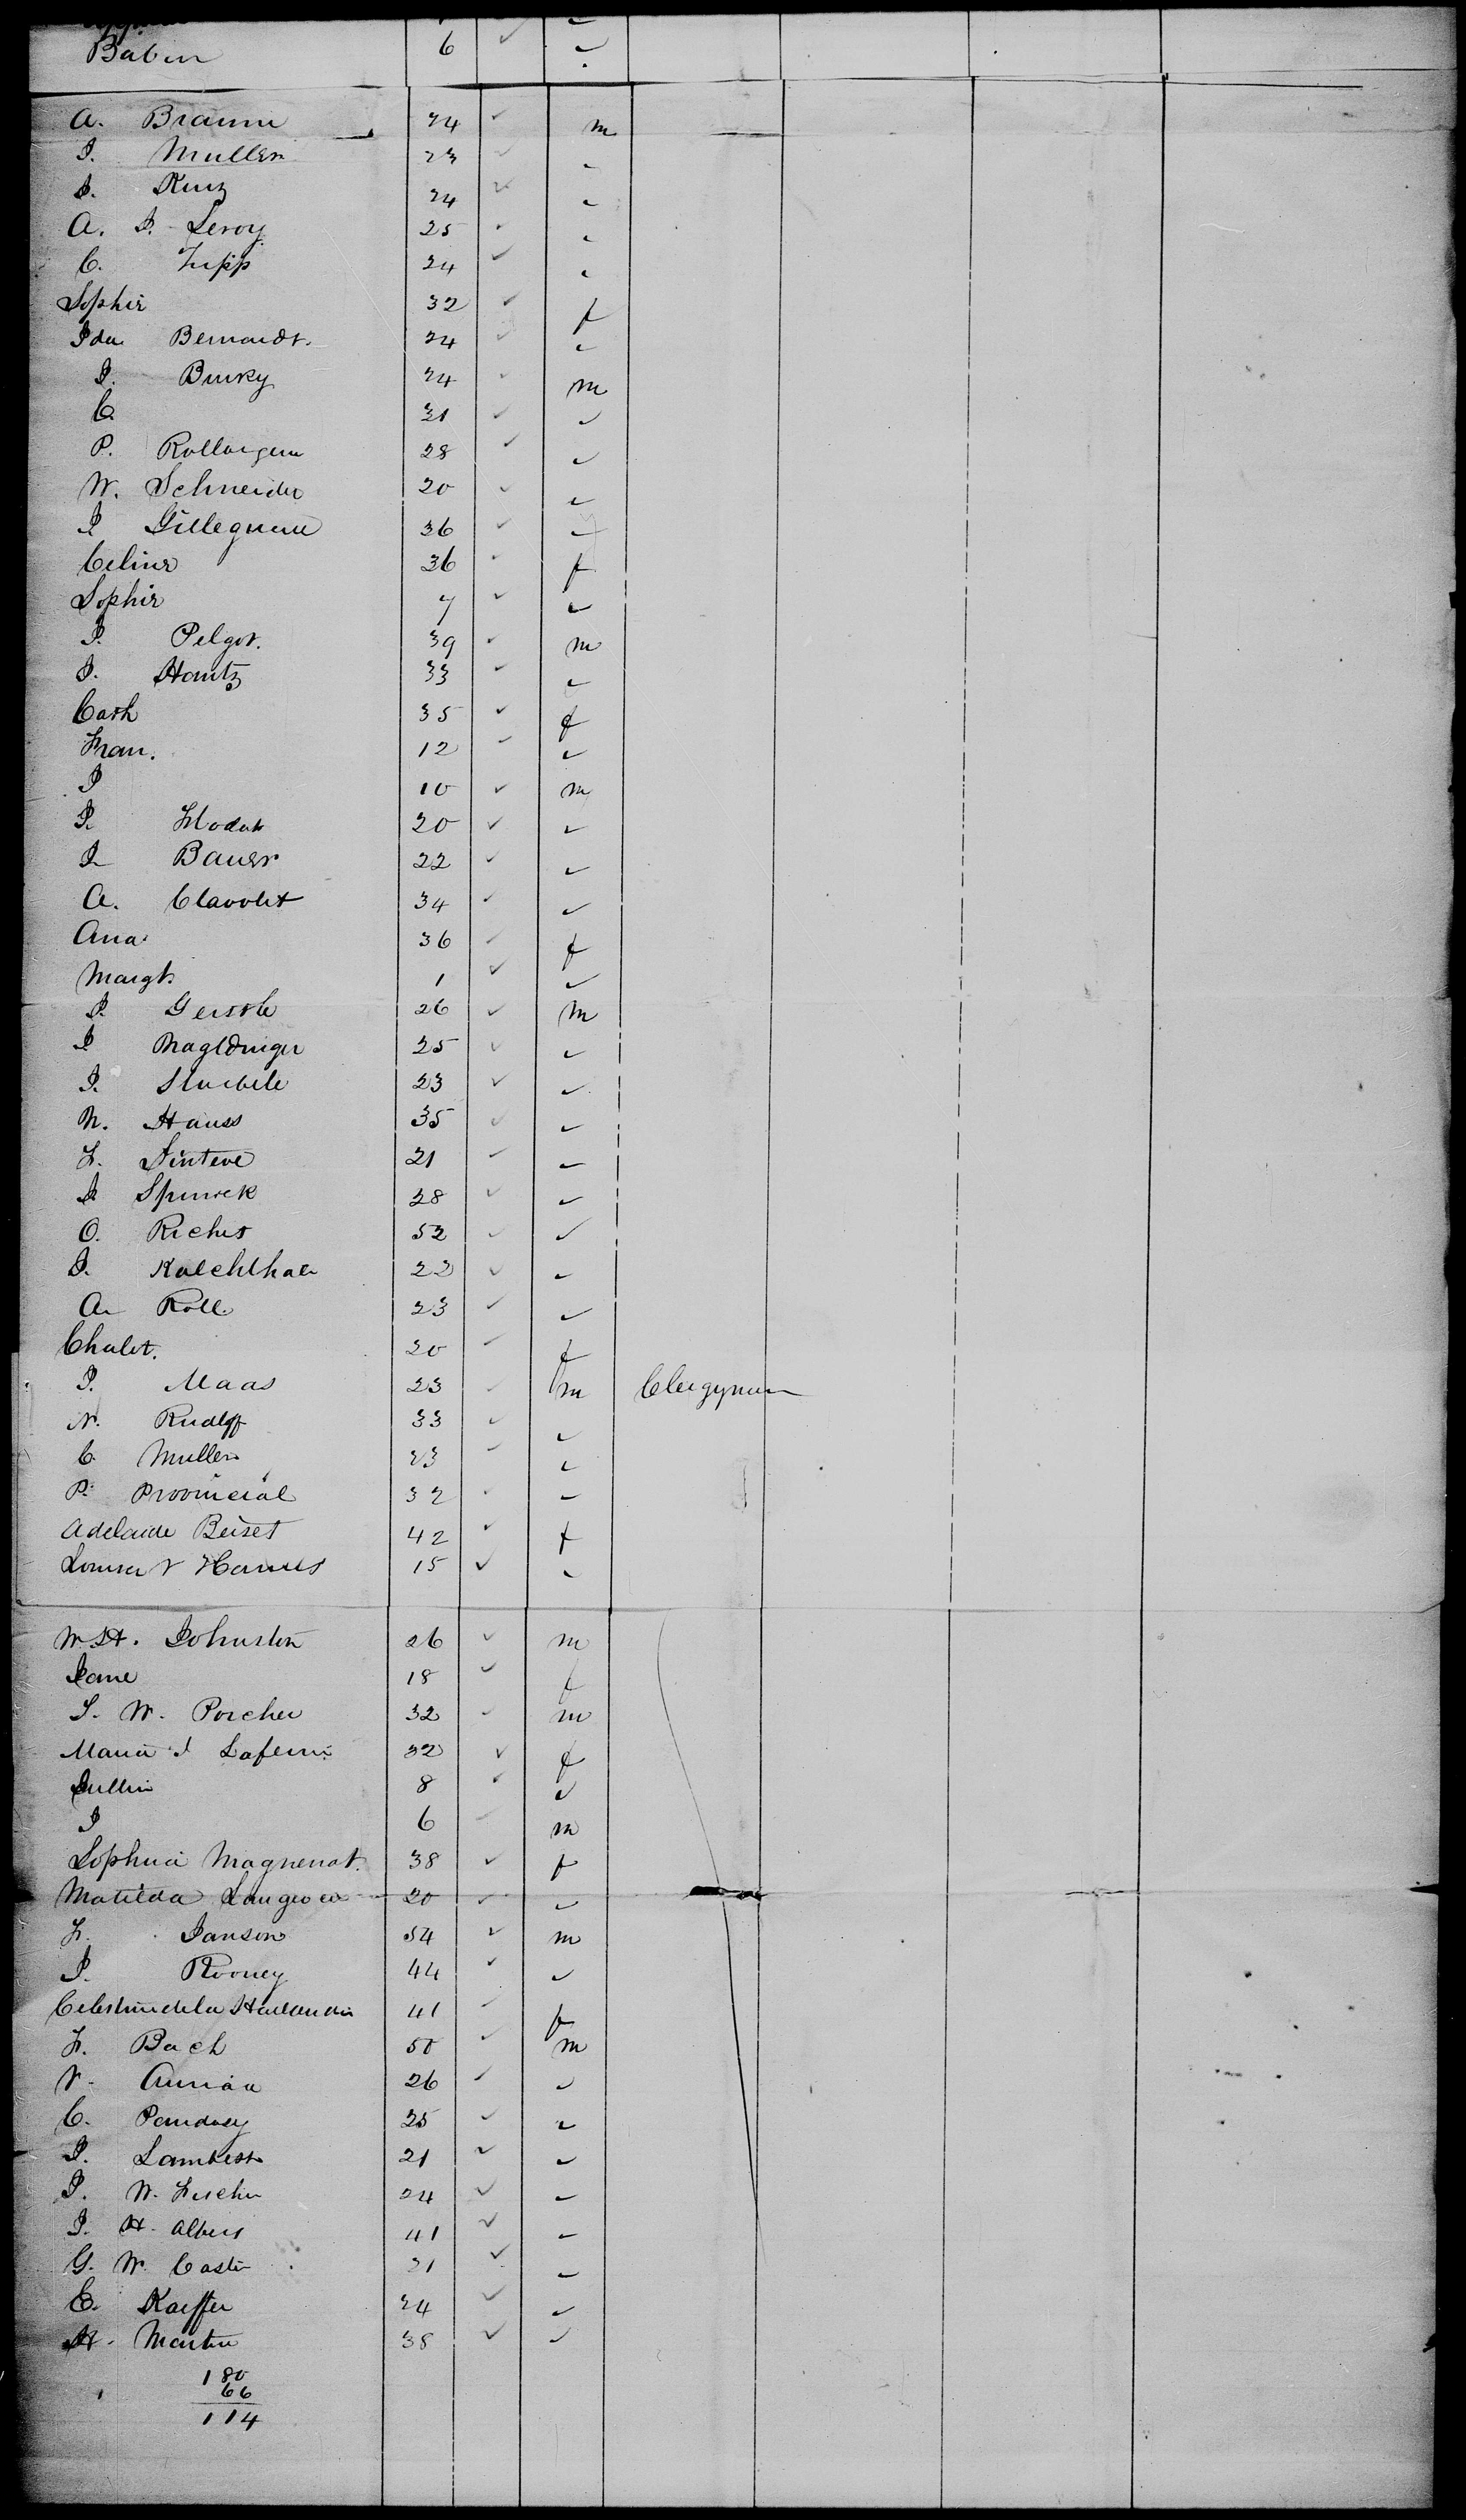 Babin 6 ✓ ✓
A. Braum 24 ✓ m
I. Muller 23 ✓ ✓
I. Kurz 24 ✓ ✓
A. I. Leroy 25 ✓ ✓
C. Zupp 24 ✓ ✓
Sophie 32 ✓ f
Ida Bernardt. 24 ✓ ✓
I. Burky 24 ✓ m
C. 31 ✓ ✓
P. 28 ✓ ✓
W. Schneider 20 ✓ ✓
I Gilleguere 36 ✓ ✓
Celine 36 ✓ f
Sophie 7 ✓ ✓
I. Pelgot. 39 ✓ m
I. Hantz 33 ✓ ✓
Cath 35 ✓ f
Fran. 12 ✓ ✓
I 10 ✓ m
I. Flodat 20 ✓ ✓
I. Bauer 22 ✓ ✓
A. Clavolet 34 ✓ ✓
Ana 36 ✓ f
Margt. 1 ✓ ✓
I. Gerstle 26 ✓ m
I 25 ✓ ✓
I. 23 ✓ ✓
N. Hauss 35 ✓ ✓
F. Sinteve 21 ✓ ✓
I Spinrek 28 ✓ ✓
O. Riches 52 ✓ ✓
I. Kalchthale 22 ✓ ✓
A. Roll 23 ✓ ✓
Chalet. 20 ✓ f
I. Maas 23 ✓ m Clergyman
N. Rudlff 33 ✓ ✓
C. Muller 23 ✓ ✓
P. Provincial 32 ✓ ✓
Adelaide Beiset 42 ✓ f
Louisa V Hames 15 ✓ ✓
W. H. Johnston 26 ✓ m
Jane 18 ✓ f
S. W. Porcher 32 ✓ m
Maria I 32 ✓ f
Jullia 8 ✓ ✓
I 6 ✓ m
Sophia Magnenat. 38 ✓ f
Matilda 20 ✓ ✓
F. Janson 54 ✓ m
I. Rooney 44 ✓ ✓
Celestine de la 41 ✓ f
F. Bach 50 ✓ m
V. 26 ✓ ✓
C. Pandoey 25 ✓ ✓
I. Lambert 21 ✓ ✓
I. W. Fischer 24 ✓ ✓
I. H. Albers 41 ✓ ✓
G. W. Caster 21 ✓ ✓
E. Kaeffer 24 ✓ ✓
H. Martin 38 ✓ ✓
180
66
114